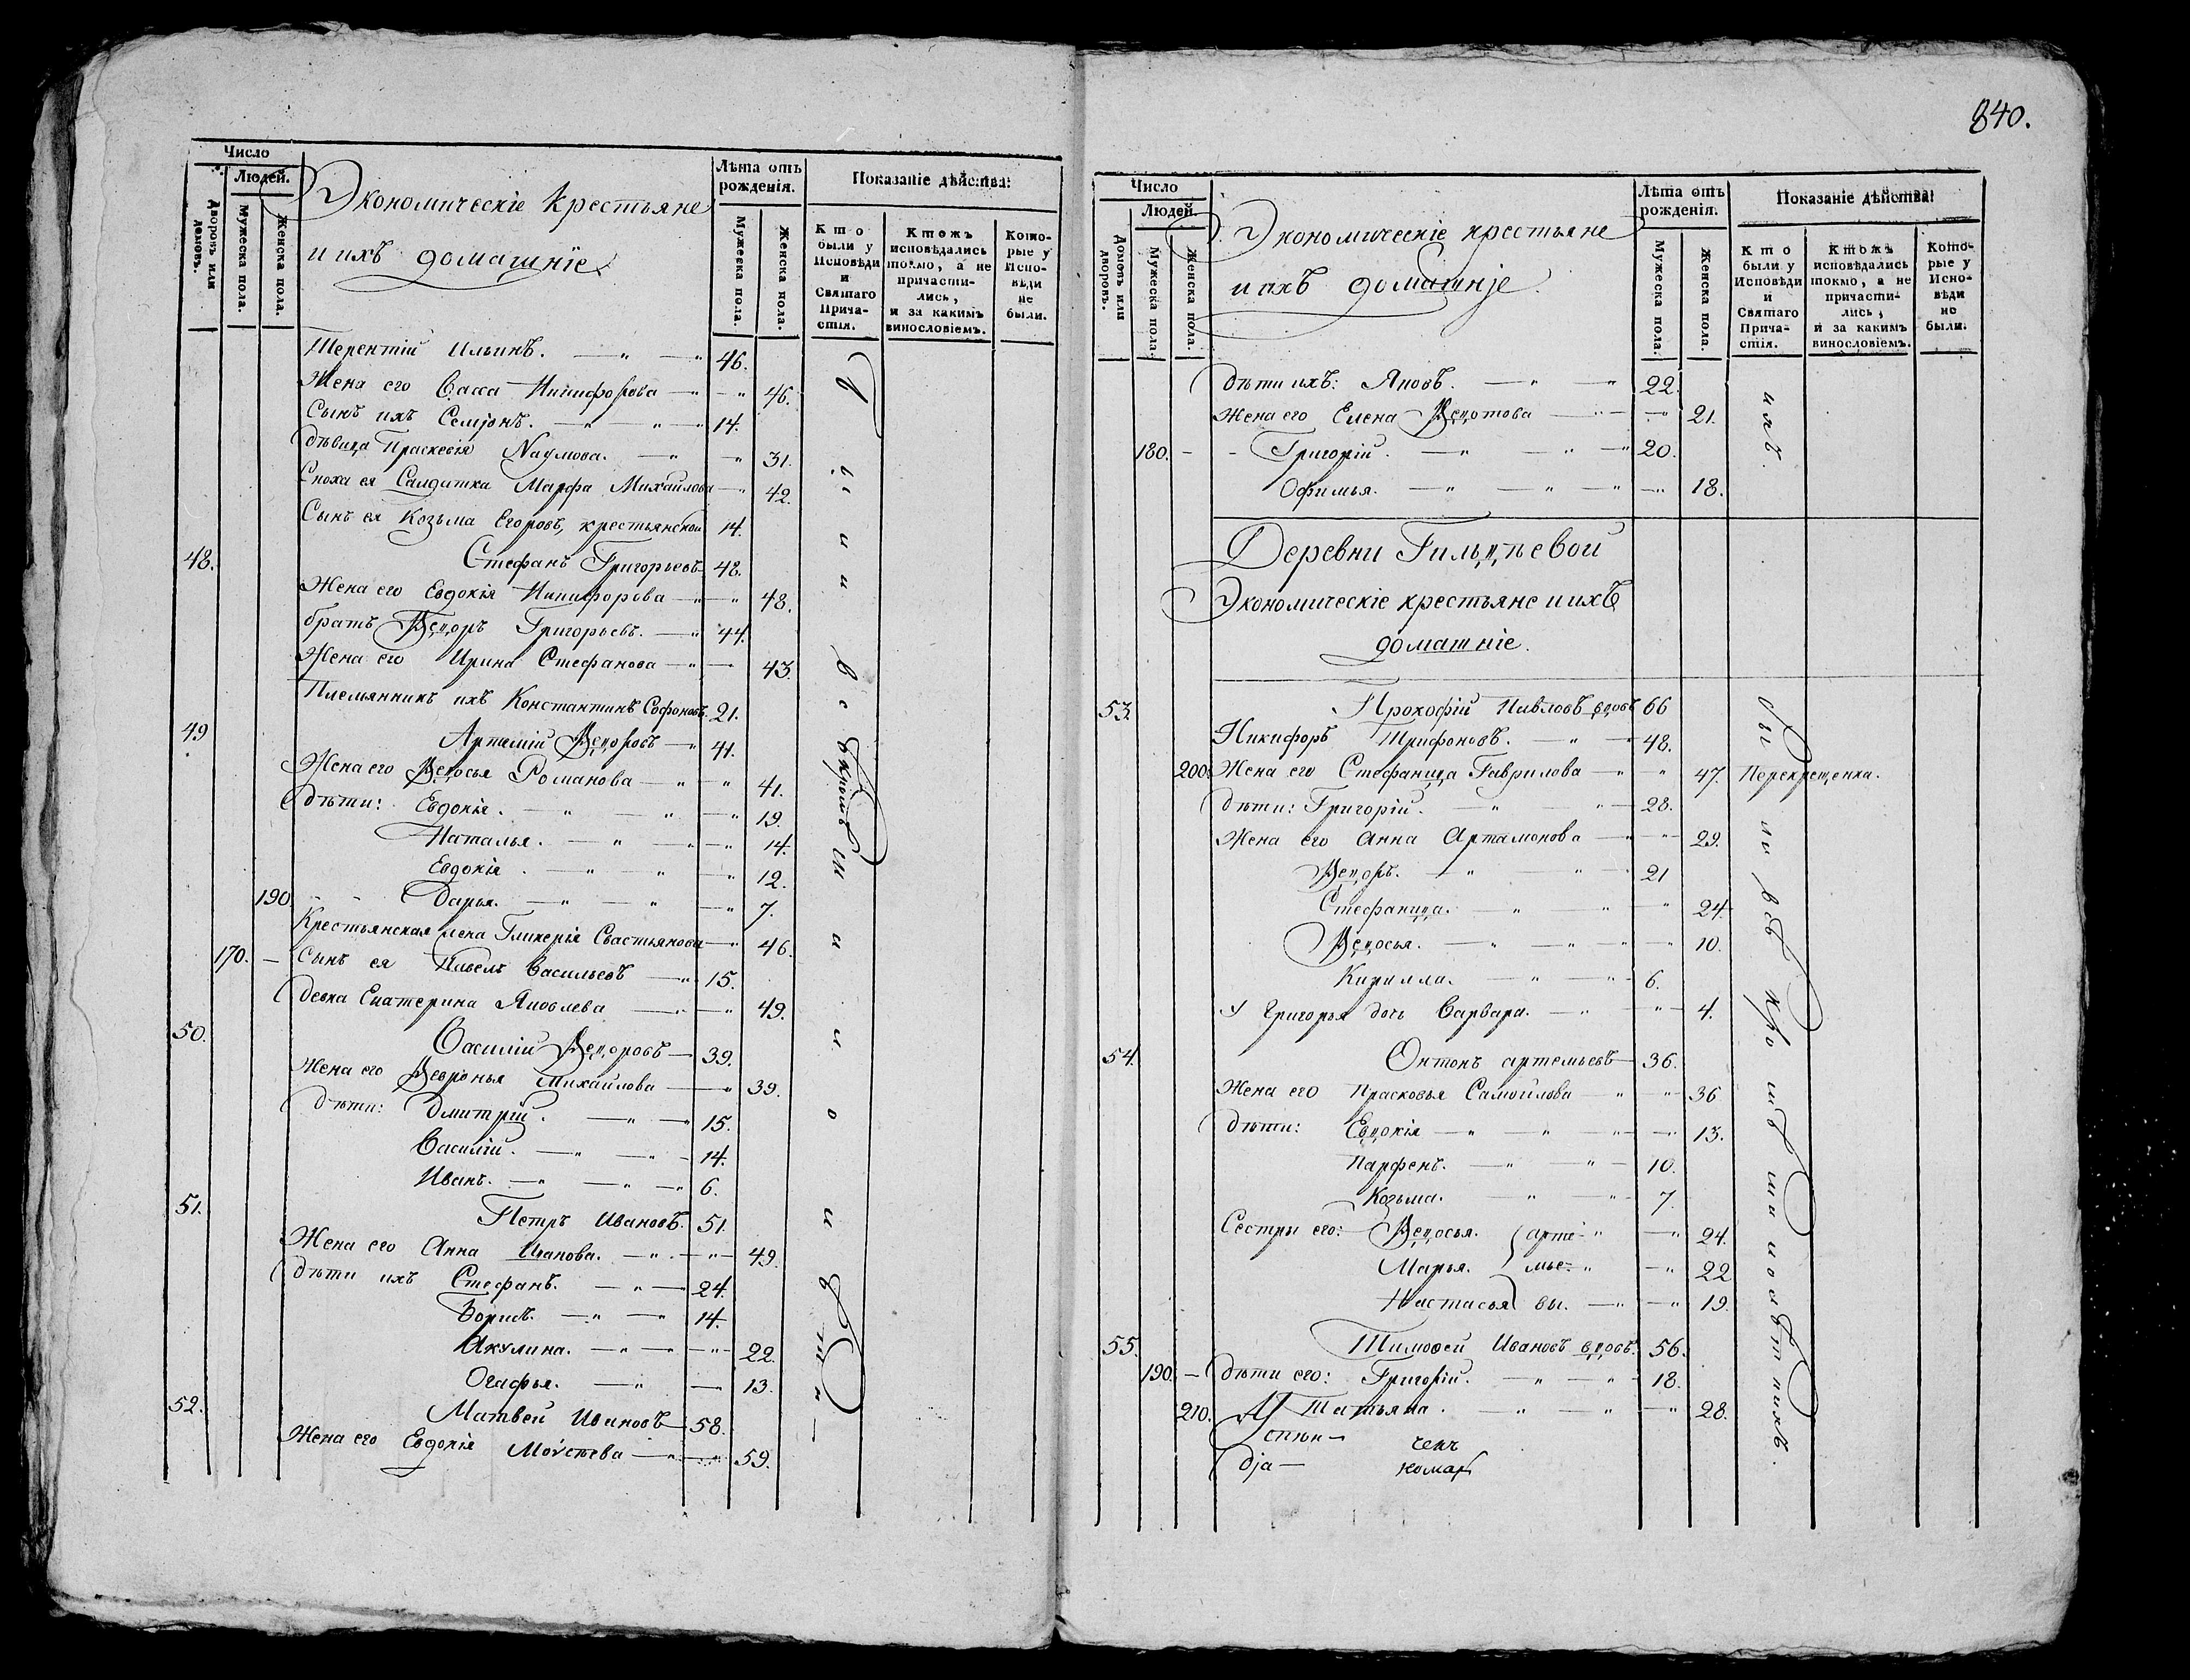 Число
Людей.
Дворовъ или домовъ.
Мужеска пола.
Женска пола.
Экономическіе крестьяне
и ихъ домашніе
Лѣта отъ рожденія.
Мужеска пола.
Женска пола.
Показаніе дѣйства:
Кто были у Исповѣди и Святаго Причастія.
Ктожъ исповѣдались токмо, а не причастились, и за какимъ винословіемъ.
Которые у Исповѣди не были.
Терентій Ильинъ. 46.
Жена его Васса Никифорова 46.
Сынъ ихъ Семіонъ. 14.
Дѣвица Праскевія Наумова. 31.
Сноха ея Салдатка Марфа Михайлова 42.
Сынъ ея Козьма Егоровъ, крестьянской 14.
48. Стефанъ Григорьевъ 48.
Жена его Евдокія Никифорова 48.
братъ Ѳедоръ Григорьевъ. 44.
Жена его Ирина Стефанова 43.
Племянникъ ихъ Константинъ Софоновъ. 21.
49 Артемій Ѳедоровъ 41.
Жена его Ѳедосья Романова 41.
Дѣти: Евдокія. 19.
Наталья. 14.
Евдокія. 12.
190. Дарья. 7.
Крестьянская жена Гликерія Савастьянова 46.
170. Сынъ ея Павелъ Васильевъ 15.
Девка Екатерина Яковлева 49.
50. Василій Ѳедоровъ 39.
Жена его Ѳевронья Михайлова 39.
Дѣти: Дмитрій. 15.
Василій. 14.
Иванъ. 6.
51. Петръ Ивановъ. 51.
Жена его Анна Иванова. 49.
Дѣти ихъ Стефанъ. 24.
Борисъ. 14.
Акулина. 22.
Огафья. 13.
52. Матвей Ивановъ 58.
Жена его Евдокія Моѵсѣева 59.
840.
Число
Людей.
Домовъ или дворовъ.
Мужеска пола.
Женска пола.
Экономическіе крестьяне
и ихъ домашніе
Лѣта отъ рожденія.
Мужеска пола.
Женска пола.
Показаніе дѣйства:
Кто были у Исповѣди и Святаго Причастія.
Ктожъ исповѣдались токмо, а не причастились, и за какимъ винословіемъ.
Которые у Исповѣди не были.
дѣти ихъ: Яковъ. 22.
Жена его Елена Ѳедотова 21.
180. Григорій. 20.
Офимья. 18.
Экономическіе крестьяне и ихъ
домашніе.
53. Прокофій Павловъ вдовъ 66
Никифоръ Трифоновъ. 48.
200. Жена его Стефанида Гаврилова 47. Перекрещенка.
дѣти: Григорій. 28.
Жена его Анна Артамонова 29.
Ѳедоръ. 21
Стефанида. 24
Ѳедосья. 10.
Кирилла. 6.
У Григорья дочь Варвара. 4.
54. Онтонъ артемьевъ 36.
Жена его Прасковья Самойлова 36
дѣти: Евдокія 13.
Парфенъ. 10.
Козьма. 7.
Сестры его: Ѳедосья. арте 24.
Марья. мье 22
Настасья вы. 19.
55. Тимофей Ивановъ вдовъ. 56.
190. дѣти его: Григорій. 18.
210. Татьяна. 28.